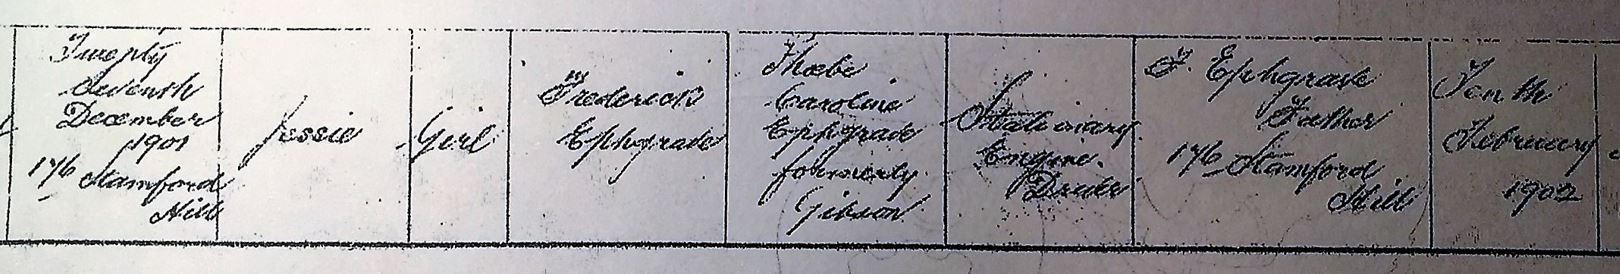 Twenty
Seventh
December
1901
176 Stamford
Hill
Jessie
Girl
Frederick
Ephgrave
Phoebe
Caroline
Ephgrave
formerly
Gibson
Stationary
Engine
Driver
F. Ephgrave
Father
176 Stamford
Hill
Tenth
February
1902